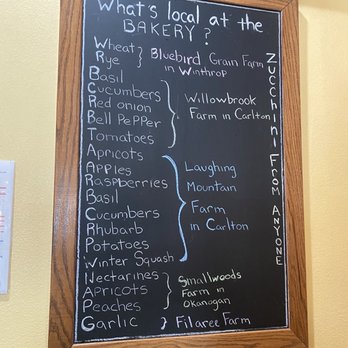 What's local at the
BAKERY?
Wheat
Rye
Bluebird Grain Farm
in Winthrop
Basil
Cucumbers
Red onion
Bell Pepper
Tomatoes
Willowbrook
Farm in Carlton
Apricots
Apples
Raspberries
Basil
Cucumbers
Rhubarb
Potatoes
Winter Squash
Laughing
Mountain
Farm
in Carlton
Nectarines
Apricots
Peaches
Smallwoods
Farm in
Okanogan
Garlic
Filaree Farm
Zucchini From Anyone